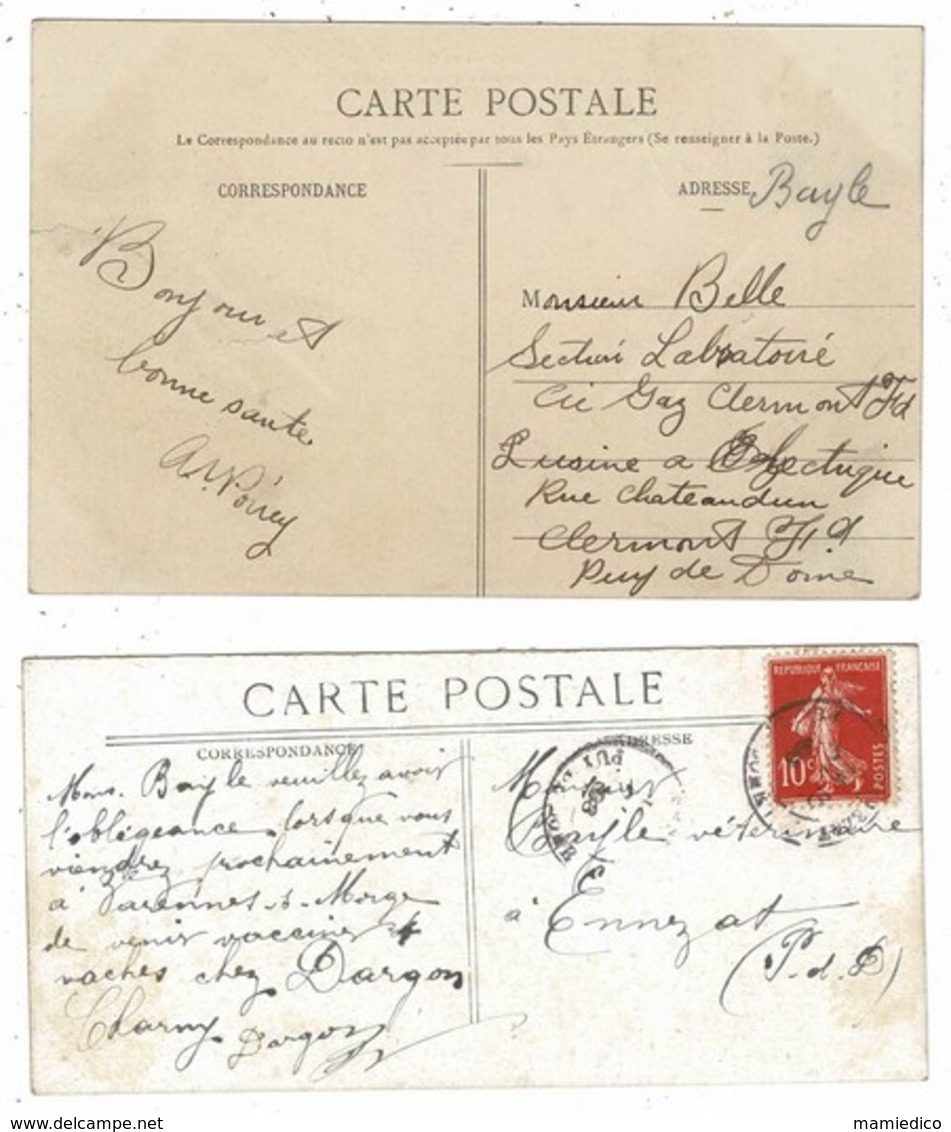 CARTE POSTALE
Le Correspondance au recto n'est pas acceptée par tous les Pays Étrangers (Se renseigner à la Poste.)
CORRESPONDANCE
ADRESSE Bayle
Bonjour et
bonne santé
Monsieur Belle
Section Labratoiré
Cie Gaz Clermont Fd
Lusine a Electrique
Rue Chateaudun
Clermont Fd
Puy de Dome
CARTE POSTALE
CORRESPONDANCE
Mons. Bayle veuillez avoir
l'obligeance lorsque vous
viendrez prochainement
à Varennes-s-Morge
de venir vacciner 4
vaches chez Dargon
Charny
Dargon
ADRESSE
REPUBLIQUE FRANÇAISE
10c
POSTES
PUY DE DOME
Monsieur
Bayle vétérinaire
à Ennezat
(P.d.D)
mamiedico